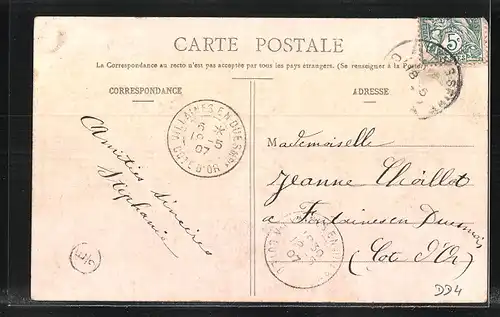 CARTE POSTALE
La Correspondance au recto n'est pas acceptée par tous les pays étrangers. (Se renseigner à la Poste)
CORRESPONDANCE
ADRESSE
5
VILLAINES-EN-DUESMOIS
16 -5
07
COTE D'OR
Amitiés sincères
Stéphanie
Mademoiselle
Jeanne Chaillot
a Fontaines en Duesmois
(Cote d'Or)
07
DD4